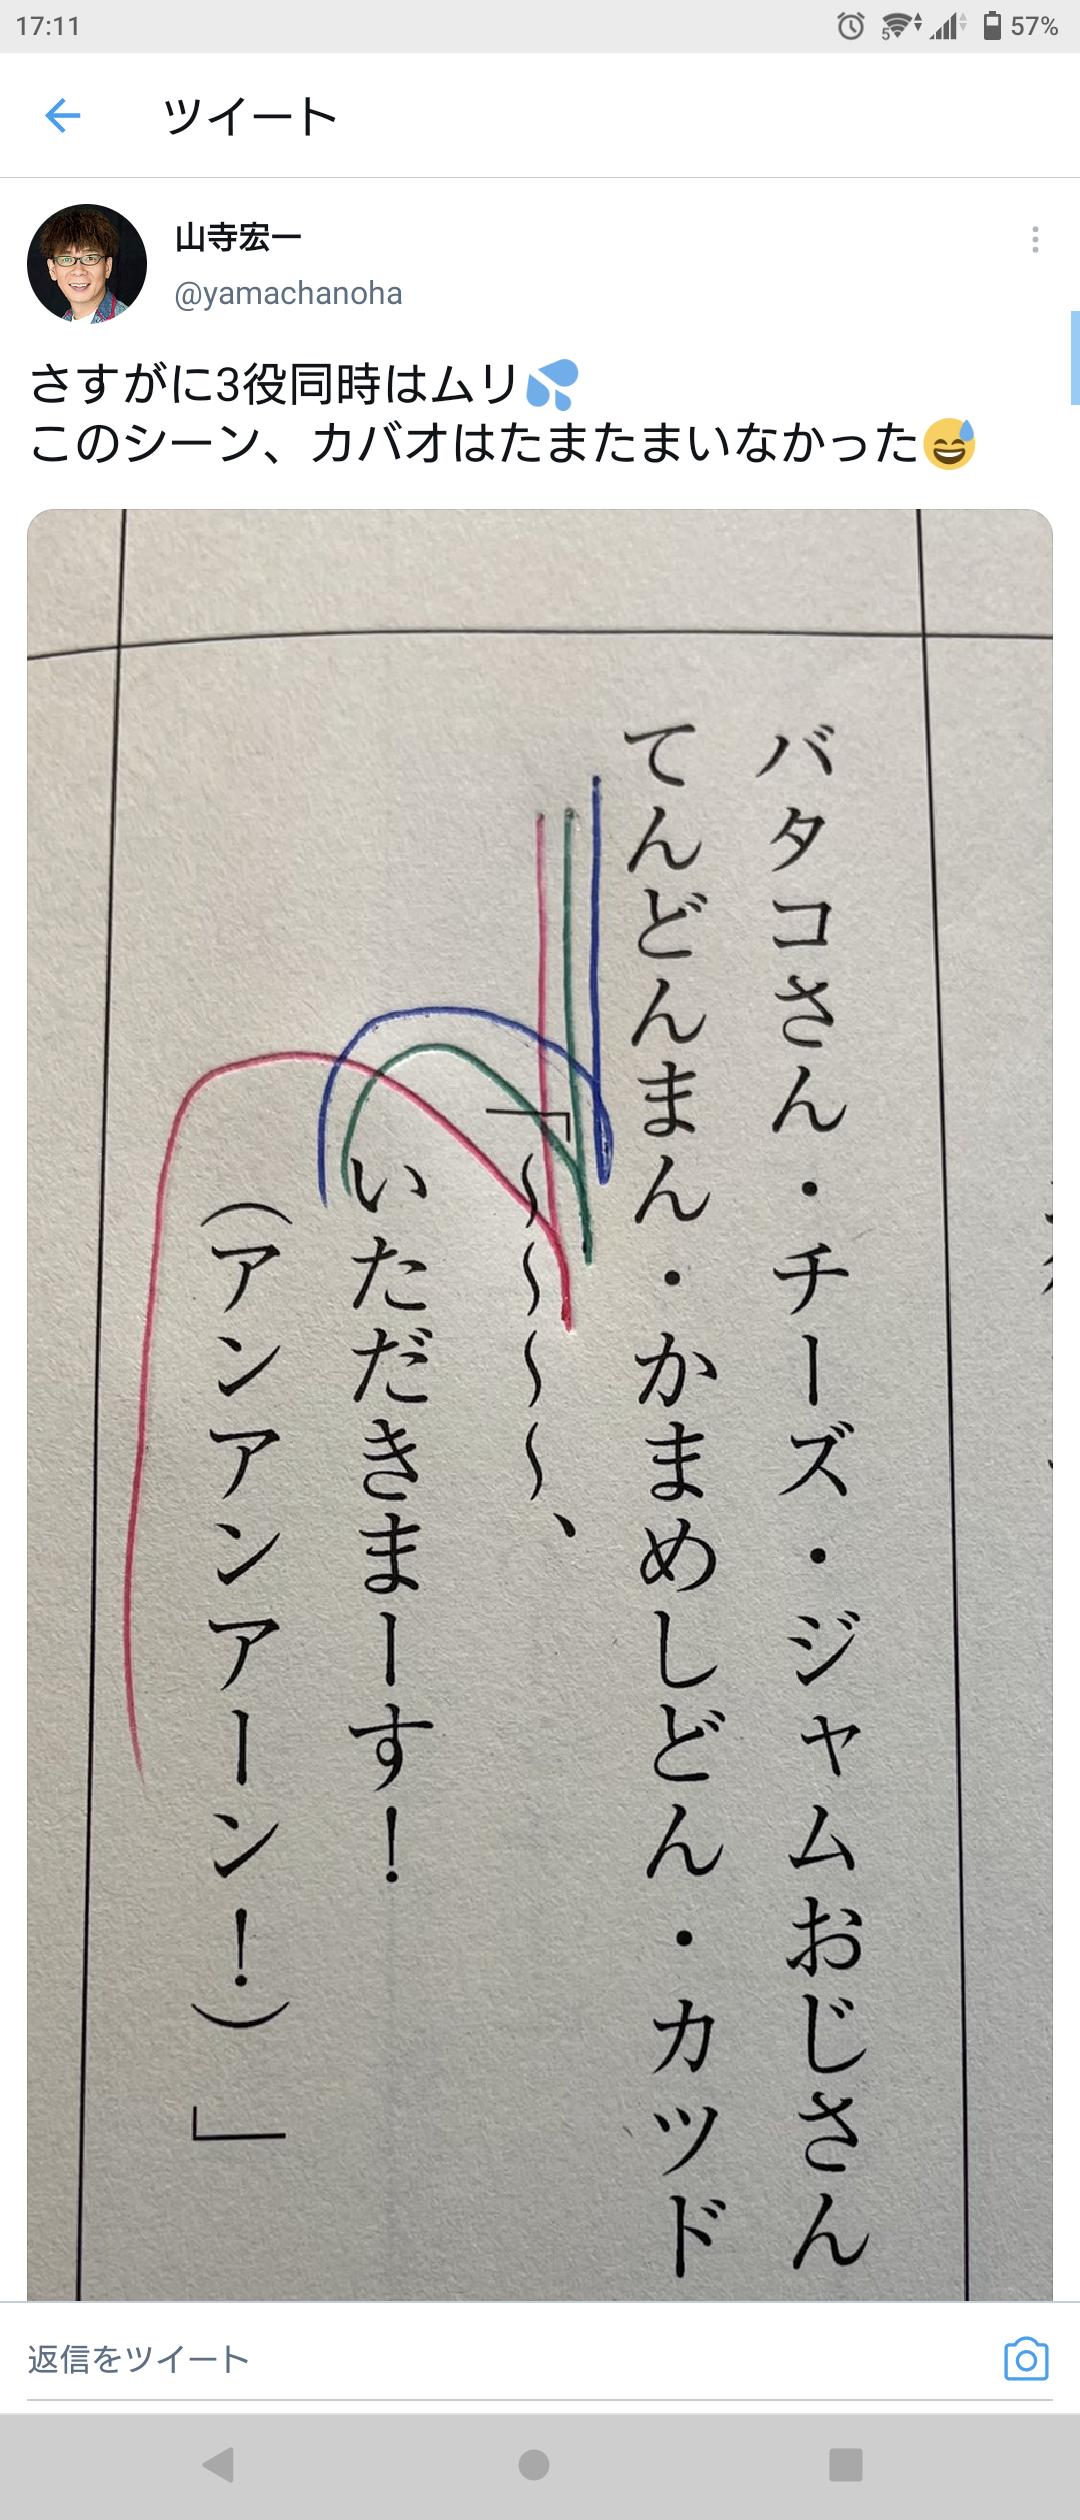 17:11
5
57%
ツイート
山寺宏一
@yamachanoha
さすがに3役同時はムリ💦
このシーン、カバオはたまたまいなかった😅
バタコさん・チーズ・ジャムおじさん
てんどんまん・かまめしどん・カツド
「~~~~、
いただきまーす!
(アンアンアーン!)」
返信をツイート